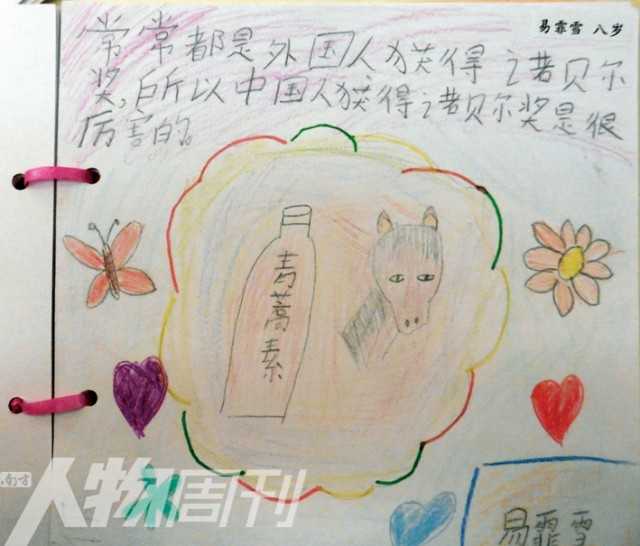 易霏雪 八岁
常常都是外国人获得诺贝尔
奖,所以中国人获得诺贝尔奖是很
厉害的。
青蒿素
南方
人物周刊
易霏雪